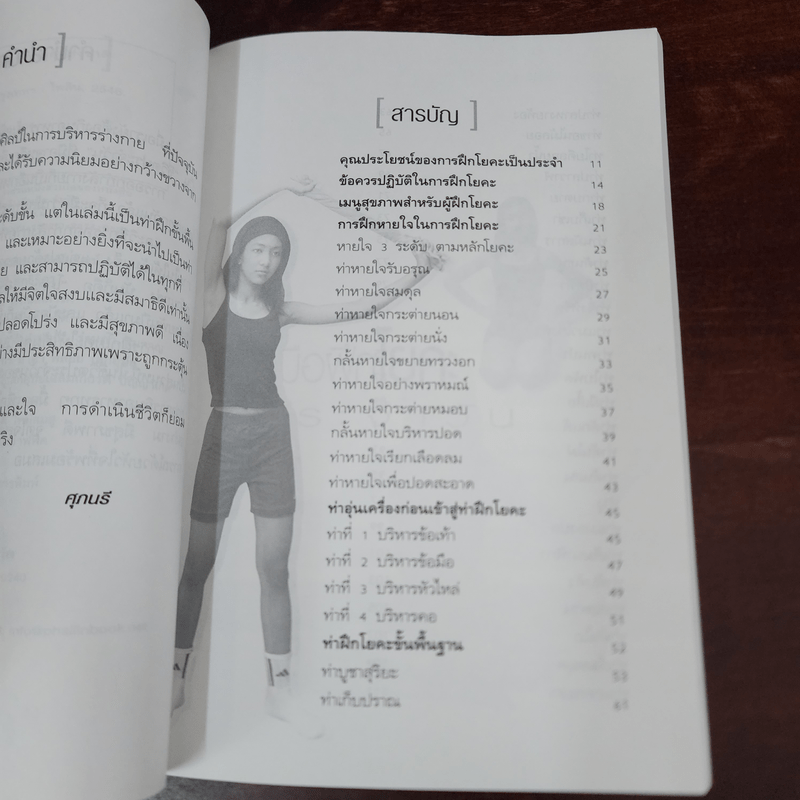 คำนำ ]
ศิลป์ในการบริหารร่างกาย ที่ปัจจุบัน
ละได้รับความนิยมอย่างกว้างขวางจาก
ะดับขั้น แต่ในเล่มนี้เป็นท่าฝึกขั้นพื้น
และเหมาะอย่างยิ่งที่จะนำไปเป็นท่า
ย และสามารถปฏิบัติได้ในทุกที่
ลให้มีจิตใจสงบและมีสมาธิดีเท่านั้น
ปลอดโปร่ง และมีสุขภาพดี เนื่อง
่างมีประสิทธิภาพเพราะถูกกระตุ้น
และใจ การดำเนินชีวิตก็ย่อม
ริง
ศุภนรี
[ สารบัญ ]
คุณประโยชน์ของการฝึกโยคะเป็นประจำ 11
ข้อควรปฏิบัติในการฝึกโยคะ 14
เมนูสุขภาพสำหรับผู้ฝึกโยคะ 18
การฝึกหายใจในการฝึกโยคะ 21
หายใจ 3 ระดับ ตามหลักโยคะ 23
ท่าหายใจรับอรุณ 25
ท่าหายใจสมดุล 27
ท่าหายใจกระต่ายนอน 29
ท่าหายใจกระต่ายนั่ง 31
กลั้นหายใจขยายทรวงอก 33
ท่าหายใจอย่างพราหมณ์ 35
ท่าหายใจกระต่ายหมอบ 37
กลั้นหายใจบริหารปอด 39
ท่าหายใจเรียกเลือดลม 41
ท่าหายใจเพื่อปอดสะอาด 43
ท่าอุ่นเครื่องก่อนเข้าสู่ท่าฝึกโยคะ 45
ท่าที่ 1 บริหารข้อเท้า 45
ท่าที่ 2 บริหารข้อมือ 47
ท่าที่ 3 บริหารหัวไหล่ 49
ท่าที่ 4 บริหารคอ 51
ท่าฝึกโยคะขั้นพื้นฐาน 53
ท่าบูชาสุริยะ 53
ท่าเก็บปราณ